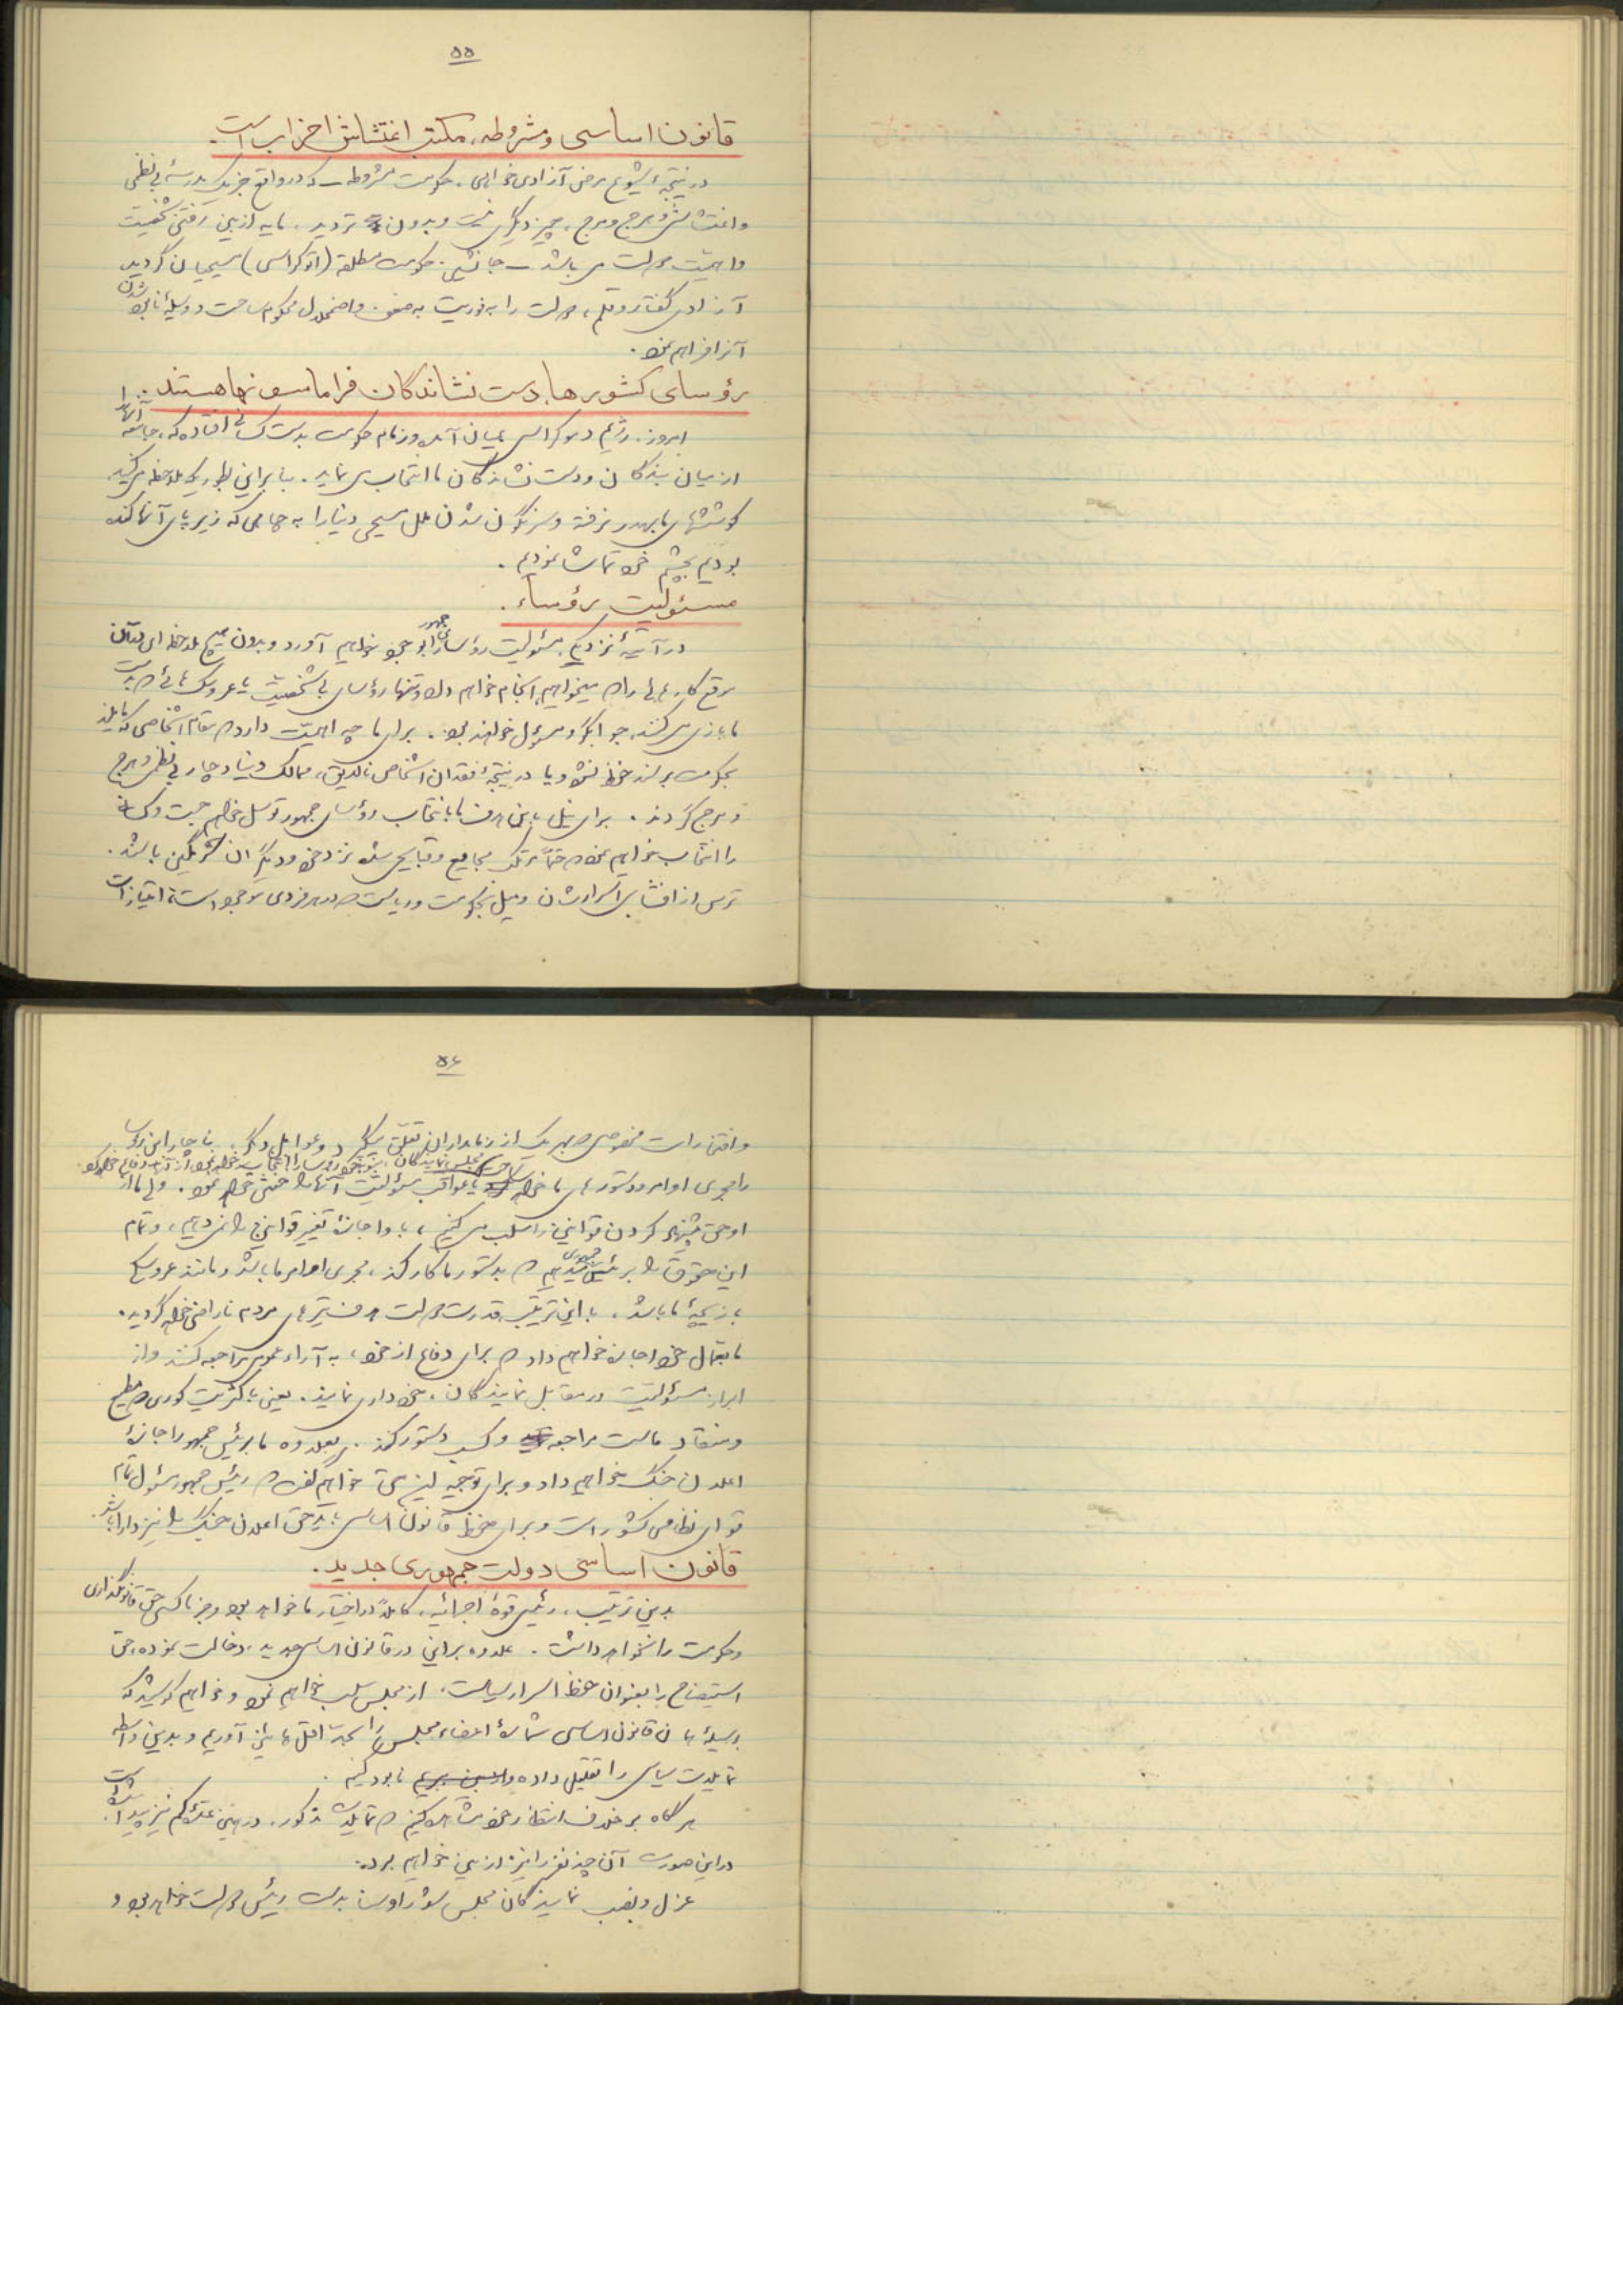 ۵۵
قانون اساسی و مشروطه، مکتب اغتشاش احزاب است.
در نتیجه شیوع مرض آزادی خواهی، حکومت مشروطه ـ که در واقع جز یک مدرسهٔ بی نظمی
و اغتشاش و هرج و مرج، چیز دیگری نیست و بدون تردید، مایه از بین رفتن شخصیت
و اهمیت دولت می باشد ـ جانشین حکومت مطلقه (اتوکراسی) مسیحیان گردید
آزادی گفتار و قلم، دولت را به ضعف و اضمحلال محکوم ساخت و وسیلهٔ نابود شدن
آنرا فراهم نمود.
رؤسای کشورها، دست نشاندگان فراماسونها هستند.
امروز، رژیم دموکراسی بمیان آمده و زمام حکومت بدست کسانی افتاده که، جامعه آنها را
از میان بندگان و دست نشاندگان ما انتخاب می نماید. بنابراین بطوریکه ملاحظه می کنید
کوششهای ما بهدر نرفته و سرنگون شدن ملل مسیحی دنیا را به چاهی که زیر پای آنها کنده
بودیم بچشم خود تماشا نمودیم.
مسئولیت رؤساء.
در آتیهٔ نزدیکی مسئولیت رؤسای جمهور را بوجود خواهیم آورد و بدون هیچ ملاحظه ای
موقع کارهائی را که میخواهیم، انجام خواهیم داد و تنها رؤسای بی شخصیت یا عروسک هائی که بدست
ما بازی می کنند، جوابگو و مسئول خواهند بود. برای ما چه اهمیت دارد که مقام اشخاصی که مایلند
بحکومت برسند حفظ نشود و یا در نتیجهٔ فقدان اشخاص لایق، ممالک دنیا دچار بی نظمی و هرج
و مرج گردند. برای نیل باین هدف ما با انتخاب رؤسای جمهور توسل خواهیم جست و کسانی
را انتخاب خواهیم نمود که حتماً مرتکب فجایع و قبایحی شده نزد خود و دیگران شرمگین باشند.
ترس از افشای اسرارشان و میل بحکومت و ریاست که در هر فردی موجود است، امتیازات
۵۶
و افتخارات مخصوصی که بهر یک از زمامداران تعلق میگیرد و عوامل دیگر، ناچار این رؤسا
را مجری اوامر و دستورهای ما خواهد ساخت
مسئولیت آنها را خنثی خواهد نمود. ولی ما از
او حق پیشنهاد کردن قوانین را سلب می کنیم، باو اجازهٔ تغییر قوانین را نمی دهیم، و تمام
این حقوق را برئیس جمهوری میدهیم که بدستور ما کار کند، مجری اوامر ما باشد و مانند عروسک
بازیچهٔ ما باشد. با این ترتیب قدرت دولت هدف تیرهای مردم ناراضی خواهد گردید.
ما بعمال خود اجازه خواهیم داد که برای دفاع از خود، به آراء عمومی مراجعه کنند و از
ابراز مسئولیت در مقابل نمایندگان، خودداری نمایند. یعنی باکثریت کوری که مطیع
و منقاد ماست مراجعه و کسب دستور کنند. بعلاوه ما برئیس جمهور اجازهٔ
اعلان جنگ خواهیم داد و برای توجیه این حق خواهیم گفت که رئیس جمهور مسئول تمام
قوای نظامی کشور است و برای حفظ قانون اساسی باید حق اعلان جنگ را نیز دارا باشد.
قانون اساسی دولت جمهوری جدید.
بدین ترتیب، رئیس قوهٔ اجرائیه، کاملاً در اختیار ما خواهد بود و جز ما کسی حق قانونگذاری
و حکومت را نخواهد داشت. علاوه براین در قانون اساسی جدید، دخالت نموده، حق
استیضاح را بعنوان حفظ اسرار سیاست، از مجلس سلب خواهیم نمود و خواهیم کوشید که
بوسیلهٔ همان قانون اساسی شمارهٔ اعضاء مجلس را بحد اقل پائین آوریم و بدین واسطه
تمایلات سیاسی را تقلیل داده نابود کنیم.
هرگاه برخلاف انتظار خود مشاهده کنیم که تمایلات مذکور، در بین عده کم نیز پیدا شده است
در این صورت آن چند نفر را نیز از بین خواهیم برد.
عزل و نصب نمایندگان مجلس شورا و سنا بدست رئیس دولت خواهد بود و